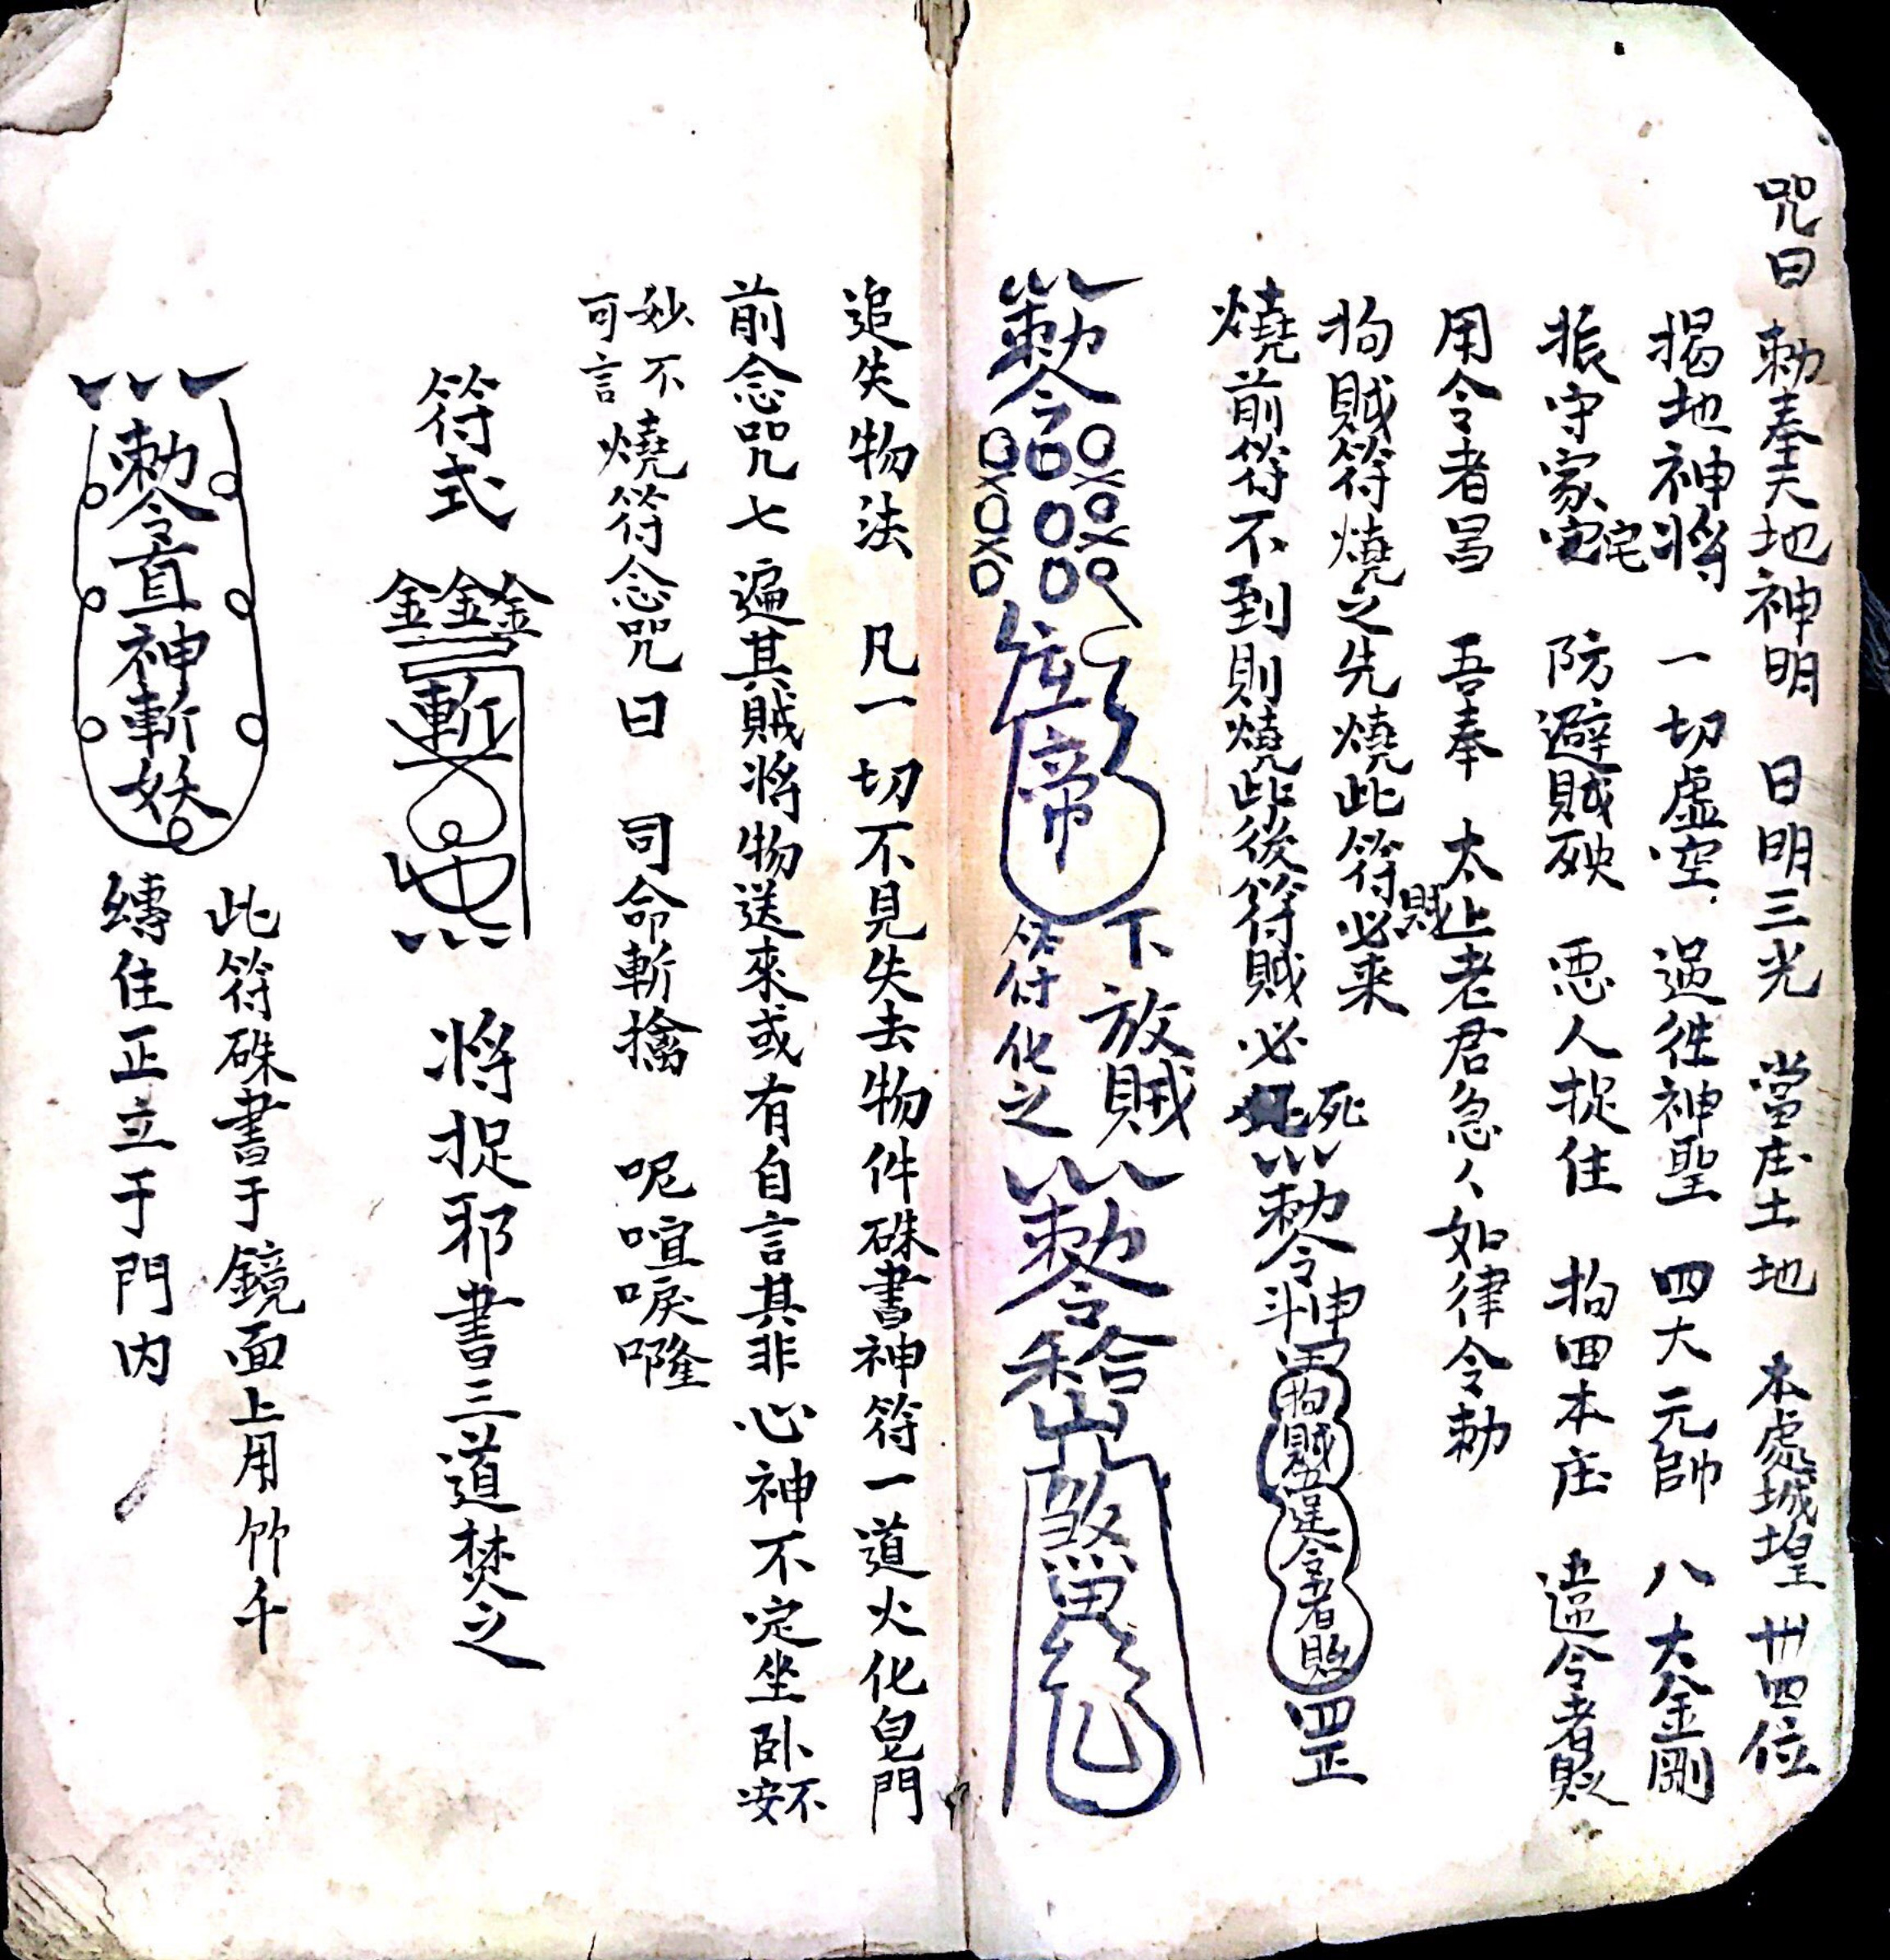 咒曰 勅奉天地神明 日明三光 當庄土地 本處城堭 卅四位
揭地神将 一切虛空 過徃神聖 四大元帥 八大金剛
振守家宅 防避賊殃 悪人捉住 拘回本庄 違令者
用令者昌 吾奉 太上老君急人如律令勅
拘賊符燒之先燒此符賊必来
燒前符不到則燒此後符賊必死
勅令 斗 拘賊 違令者 罡
勅令 帝
下放賊
符化之
勅令 煞
追失物法 凡一切不見失去物件硃書神符一道火化皂門
前念咒七遍其賊将物送來或有自言其非心神不定坐卧不安
妙不可言 燒符念咒曰 司命斬擒 呢喧唳㘐
符式 金金金 斬 将捉邪書三道焚之
勅令直神斬妖
此符硃書于鏡面上用竹千
縳住正立于門内